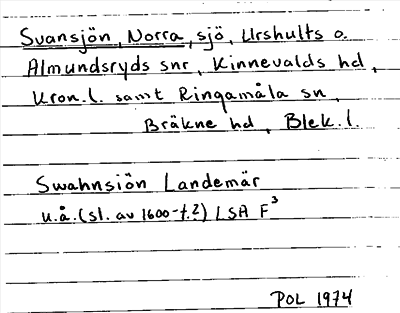 Svansjön, Norra, sjö, Urshults o.
Almundsryds snr, Kinnevalds hd,
Kron.l. samt Ringamåla sn,
Bräkne hd, Blek.l.
Swahnsiön Landemär
u.å. (sl. av 1600-t.?) LSA F³
POL 1974